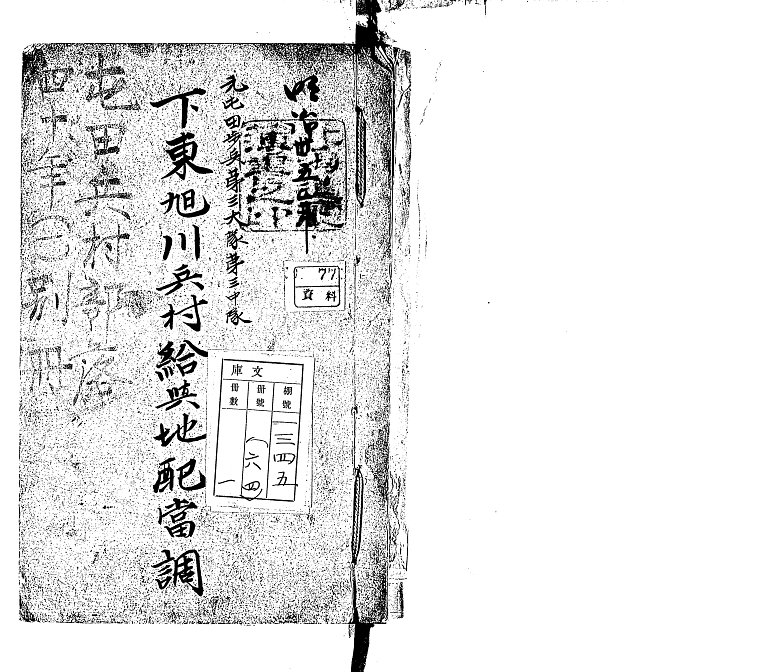 明治卅五年
元屯田歩兵第三大隊第三中隊
下東旭川兵村給與地配當調
屯田兵村部落
四十年(一)別冊
77
資料
文庫
棚號 一三四五
冊號 (六四)
冊數 一